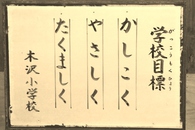 学校目標
がっこうもくひょう
かしこく
やさしく
たくましく
木沢小学校